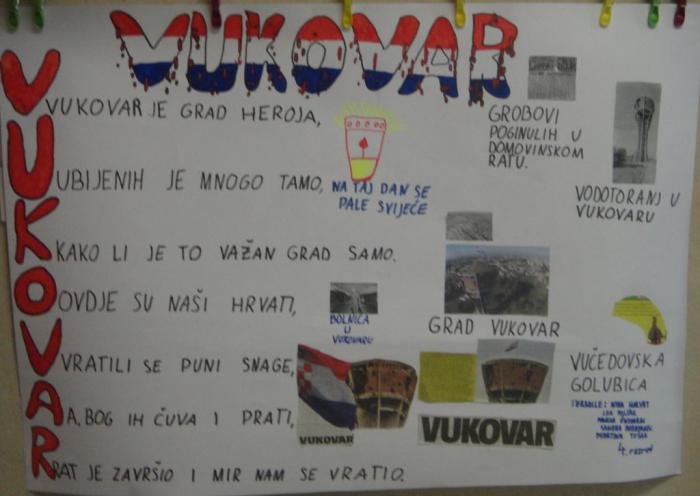 VUKOVAR
VUKOVAR JE GRAD HEROJA,
UBIJENIH JE MNOGO TAMO,
KAKO LI JE TO VAŽAN GRAD SAMO.
OVDJE SU NAŠI HRVATI,
VRATILI SE PUNI SNAGE,
A, BOG IH ČUVA I PRATI,
RAT JE ZAVRŠIO I MIR NAM SE VRATIO.
NA TAJ DAN SE
PALE SVIJEĆE
GROBOVI
POGINULIH U
DOMOVINSKOM
RATU.
VODOTORANJ U
VUKOVARU
BOLNICA
U
VUKOVARU
GRAD VUKOVAR
VUKOVAR
VUKOVAR
VUČEDOVSKA
GOLUBICA
IZRADILE:
4. razred